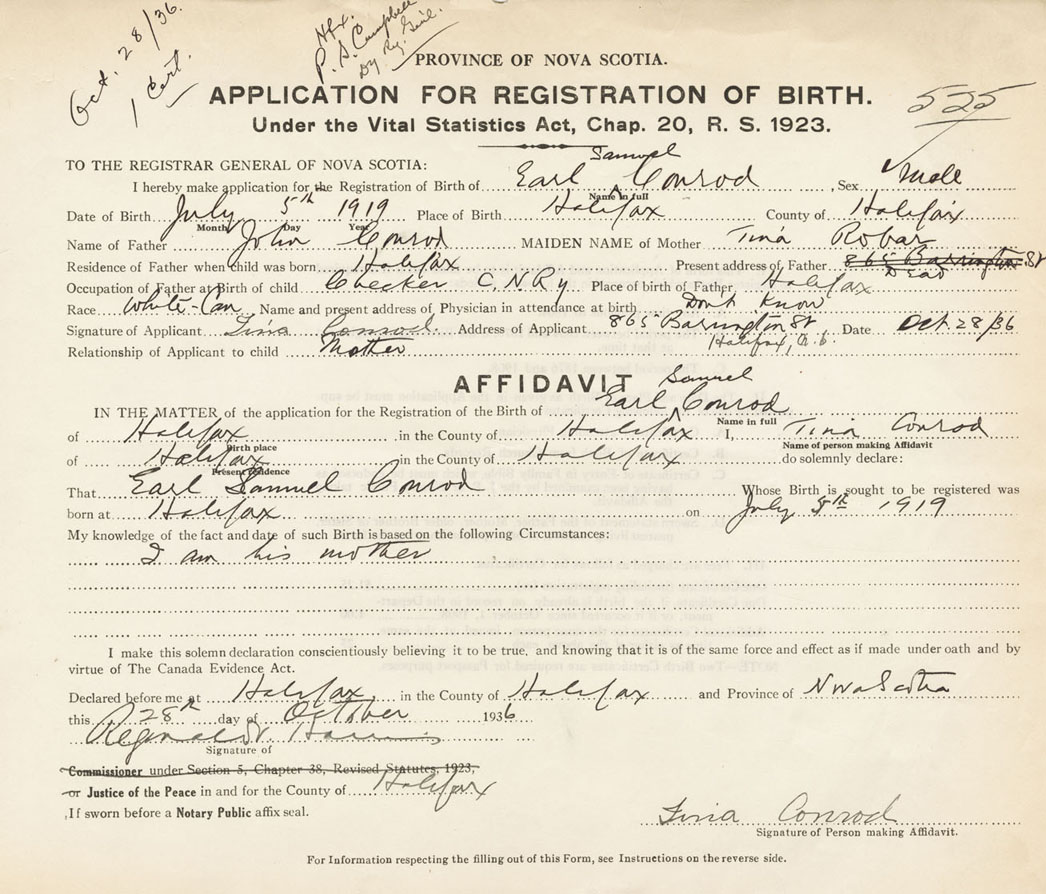 Oct. 28/36.
1 Cert.
Hfx.
P. S. Campbell
Dy Reg. Genl.
PROVINCE OF NOVA SCOTIA.
APPLICATION FOR REGISTRATION OF BIRTH.
525
Under the Vital Statistics Act, Chap. 20, R. S. 1923.
TO THE REGISTRAR GENERAL OF NOVA SCOTIA:
Samuel
I hereby make application for the Registration of Birth of Earl Conrod, Sex Male
Name in full
Date of Birth July 5th 1919 Place of Birth Halifax County of Halifax
Month Day Year
Name of Father John Conrod MAIDEN NAME of Mother Tina Robar
Residence of Father when child was born Halifax Present address of Father 865 Barrington St
Dead
Occupation of Father at Birth of child Checker C.N.Ry Place of birth of Father Halifax
Race White-Can. Name and present address of Physician in attendance at birth Don't Know
Signature of Applicant Tina Conrod. Address of Applicant 865 Barrington St, Date Oct. 28/36
Halifax, N.S.
Relationship of Applicant to child Mother
AFFIDAVIT
Samuel
IN THE MATTER of the application for the Registration of the Birth of Earl Conrod
Name in full
of Halifax in the County of Halifax I, Tina Conrod
Birth place Name of person making Affidavit
of Halifax in the County of Halifax do solemnly declare:
Present residence
That Earl Samuel Conrod Whose Birth is sought to be registered was
born at Halifax on July 5th 1919
My knowledge of the fact and date of such Birth is based on the following Circumstances:
I am his mother
I make this solemn declaration conscientiously believing it to be true, and knowing that it is of the same force and effect as if made under oath and by
virtue of The Canada Evidence Act.
Declared before me at Halifax, in the County of Halifax and Province of Nova Scotia
this 28th day of October 1936
Reginald V. Harris
Signature of
Commissioner under Section 5, Chapter 38, Revised Statutes, 1923,
or Justice of the Peace in and for the County of Halifax
If sworn before a Notary Public affix seal.
Tina Conrod
Signature of Person making Affidavit.
For Information respecting the filling out of this Form, see Instructions on the reverse side.